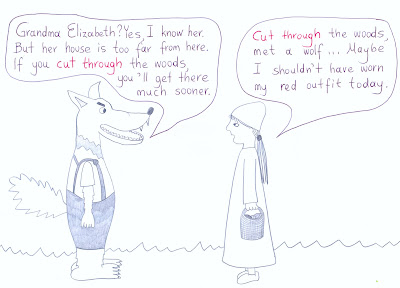 Grandma Elizabeth? Yes, I know her.
But her house is too far from here.
If you cut through the woods,
you'll get there
much sooner.
Cut through the woods,
met a wolf... Maybe
I shouldn't have worn
my red outfit today.